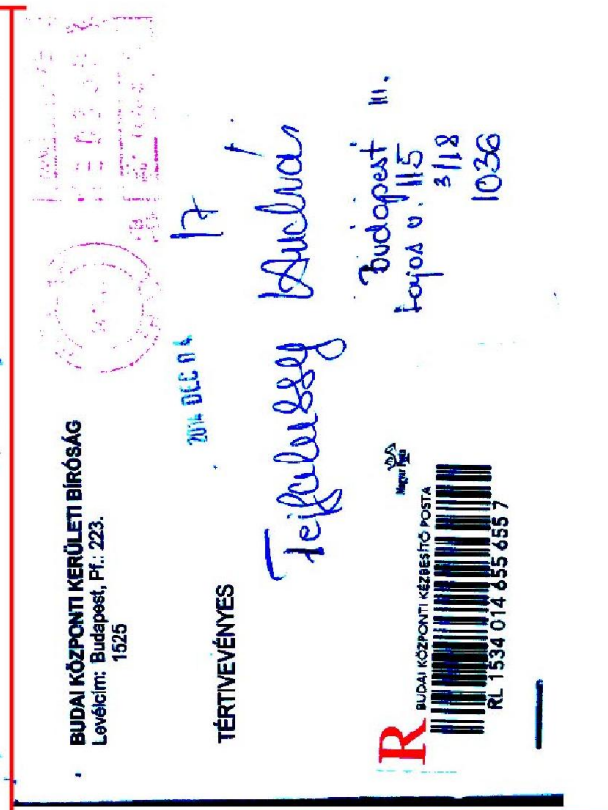 BUDAI KÖZPONTI KERÜLETI BÍRÓSÁG
Levélcím: Budapest, Pf.: 223.
1525
2014 DEC 04
17
TÉRTIVEVÉNYES
Tejfalussy András
Budapest III.
Lajos u. 115
3/18
1036
R
BUDAI KÖZPONTI KÉZBESÍTŐ POSTA
Magyar Posta
RL 1534 014 655 655 7